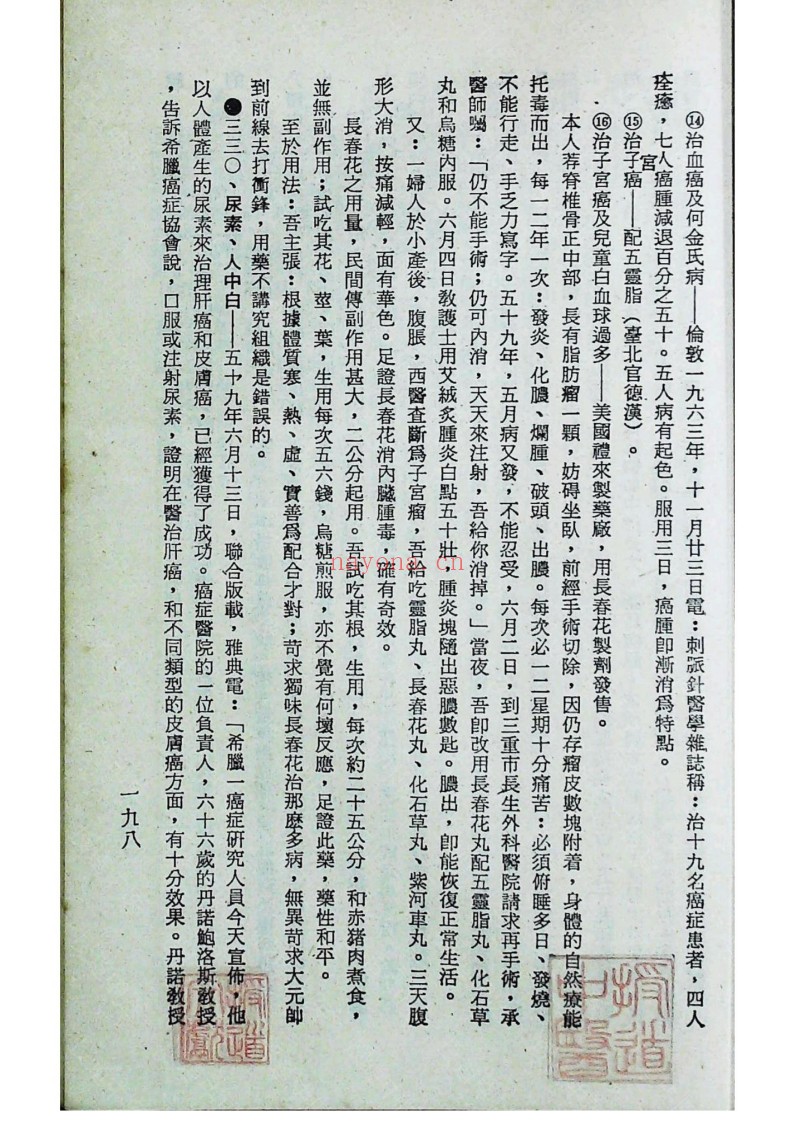 ⑭治血癌及何金氏病——倫敦一九六三年，十一月廿三日電：刺胳針醫學雜誌稱：治十九名癌症患者，四人
痊癒，七人癌腫減退百分之五十。五人病有起色。服用三日，癌腫卽漸消爲特點。
⑮治子宮癌——配五靈脂（臺北官德漢）。
⑯治子宮癌及兒童白血球過多——美國禮來製藥廠，用長春花製劑發售。
本人荐脊椎骨正中部，長有脂肪瘤一顆，妨碍坐臥，前經手術切除，因仍存瘤皮數塊附着，身體的自然療能
托毒而出，每一二年一次：發炎、化膿、爛腫、破頭、出膿。每次必一二星期十分痛苦：必須俯睡多日、發燒、
不能行走、手乏力寫字。五十九年，五月病又發，不能忍受，六月二日，到三重市長生外科醫院請求再手術，承
醫師囑：「仍不能手術；仍可內消，天天來注射，吾給你消掉。」當夜，吾卽改用長春花丸配五靈脂丸、化石草
丸和烏糖內服。六月四日教護士用艾絨炙腫炎白點五十壯，腫炎塊隨出惡膿數匙。膿出，卽能恢復正常生活。
又：一婦人於小產後，腹脹，西醫查斷爲子宮瘤，吾給吃靈脂丸、長春花丸、化石草丸、紫河車丸。三天腹
形大消，按痛減輕，面有華色。足證長春花消內臟腫毒，確有奇效。
長春花之用量，民間傳副作用甚大，二公分起用。吾試吃其根，生用，每次約二十五公分，和赤猪肉煮食，
並無副作用；試吃其花、莖、葉，生用每次五六錢，烏糖煎服，亦不覺有何壞反應，足證此藥，藥性和平。
至於用法：吾主張：根據體質塞、熱、虛、實善爲配合才對；苛求獨味長春花治那麽多病，無異苛求大元帥
到前線去打衝鋒，用藥不講究組織是錯誤的。
●三三〇、尿素、人中白——五十九年六月十三日，聯合版載，雅典電：「希臘一癌症研究人員今天宣佈，他
以人體產生的尿素來治理肝癌和皮膚癌，已經獲得了成功。癌症醫院的一位負責人，六十六歲的丹諾鮑洛斯教授
，告訴希臘癌症協會說，口服或注射尿素，證明在醫治肝癌，和不同類型的皮膚癌方面，有十分效果。丹諾教授
一九八
nayona.cn
授道
中醫
授道